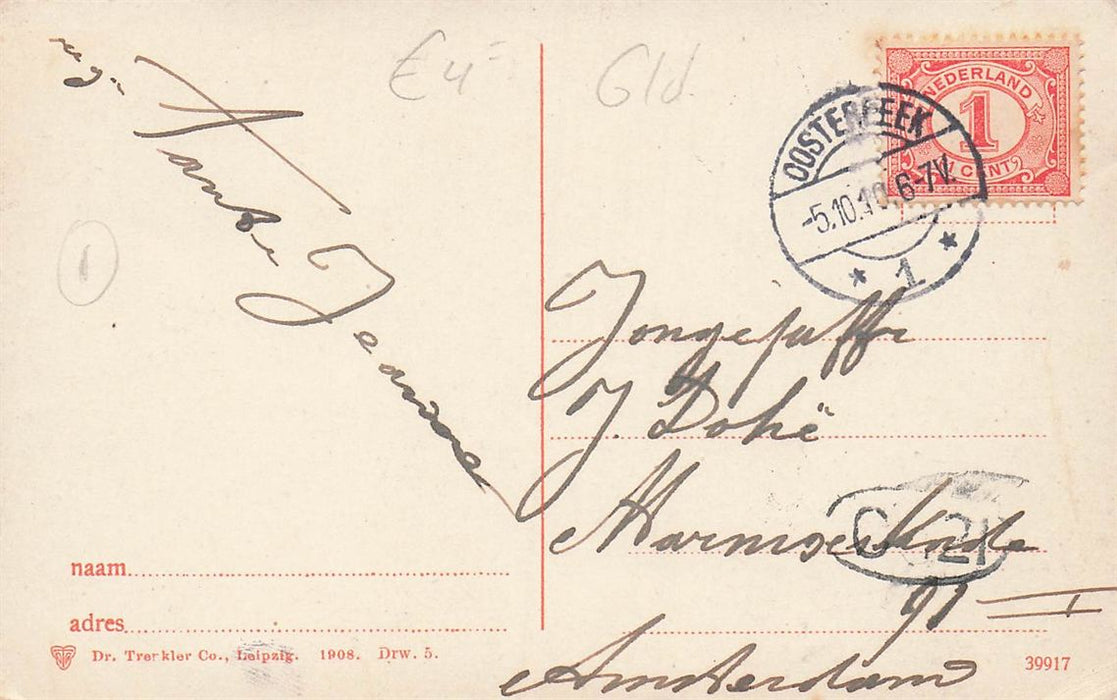 € 4-
Gld
NEDERLAND
1
1 CENT
OOSTERBEEK
-5.10.10. 6-7V.
1
Tante
Jongejuffr
J. Dohë
Marnixkade
91 I
Amsterdam
C 21
naam
adres
Dr. Trenkler Co., Leipzig. 1908. Drw. 5.
39917